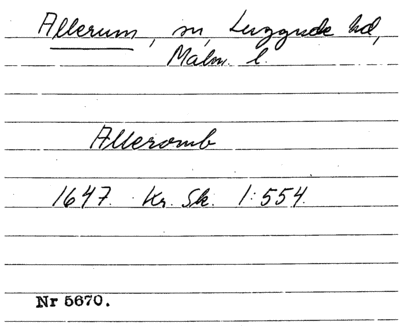 Allerum, sn, Luggude hd,
Malm. l.
Alleromb
1647. Kr. Sk. 1:554.
Nr 5670.